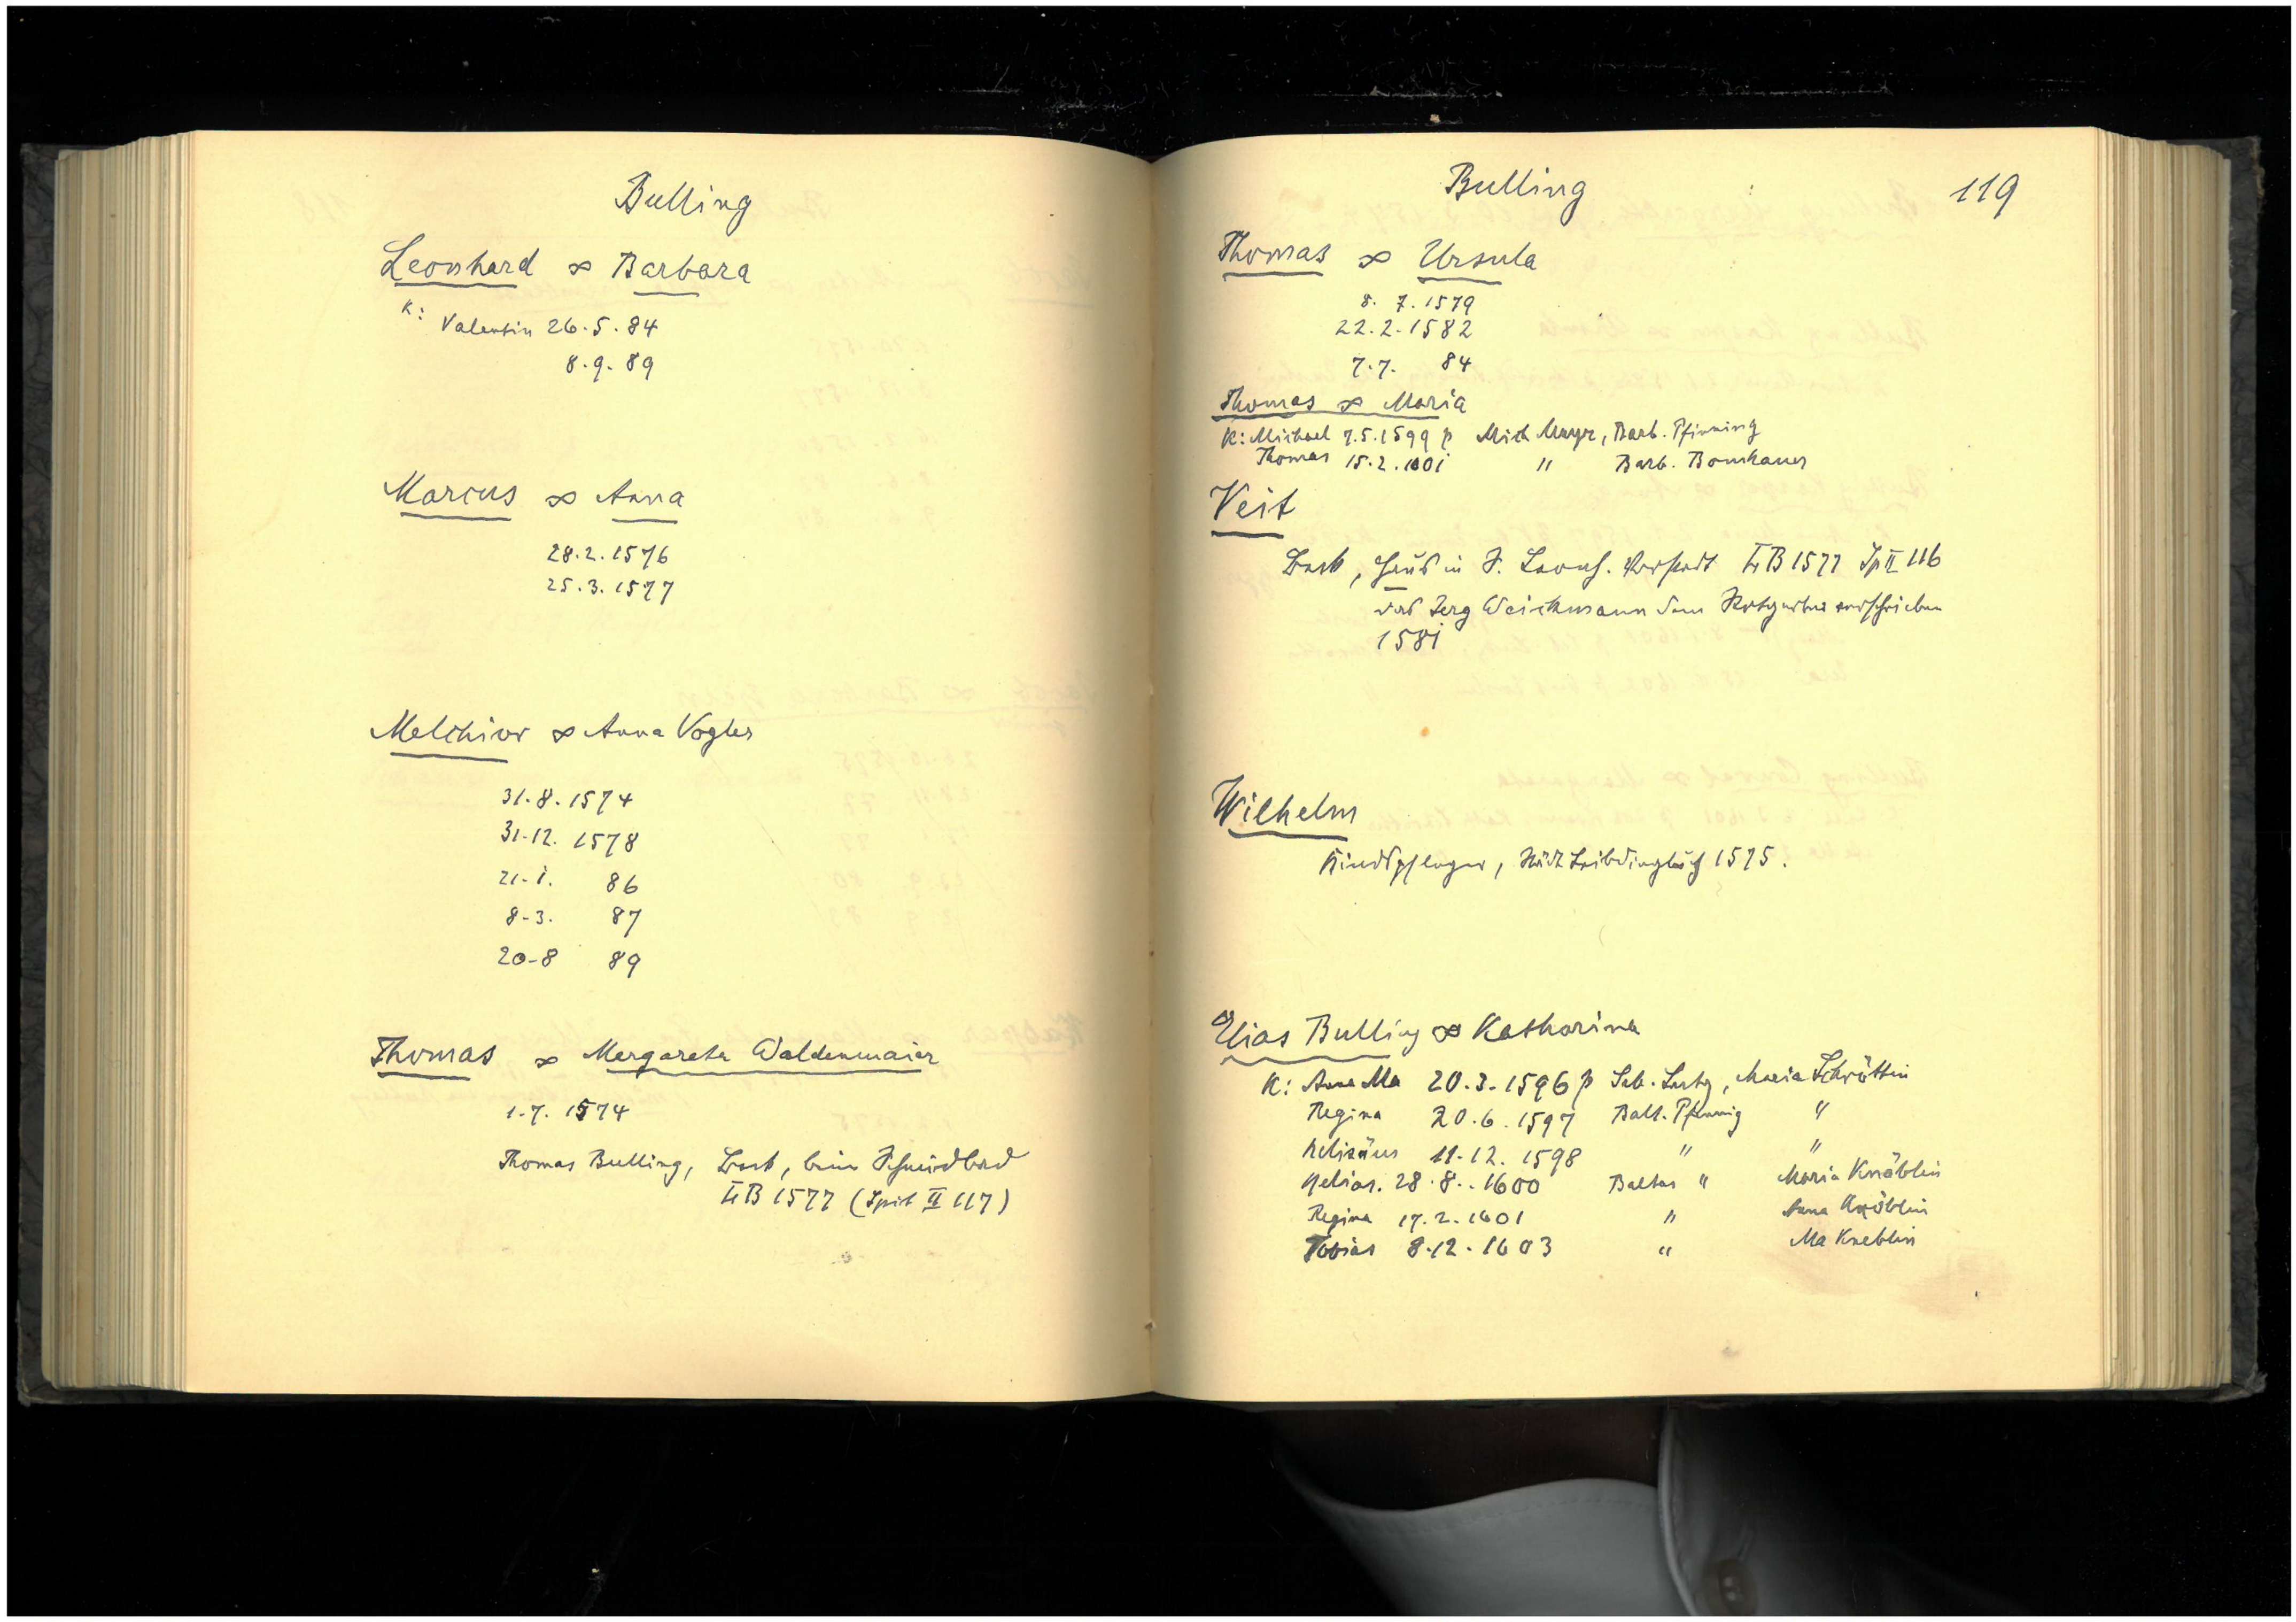 Bulling
Leonhard ∞ Barbara
K:
Valentin 26.5.84
8.9.89
Marcus ∞ Anna
28.2.1576
25.3.1577
Melchior ∞ Anna Vogler
31.8.1574
31.12.1578
21.i. 86
8-3. 87
20-8 89
Thomas ∞ Margareta Waldenmaier
1.7.1574
Thomas Bulling, beim Schmidbad
1577 (Spit II 117)
Bulling 119
Thomas ∞ Ursula
8.7.1579
22.2.1582
7.7. 84
Thomas ∞ Maria
K: Michael 7.5.1599 p Mich Mayr, Barb. Pfinning
Thomas 15.2.160i " Barb.
Veit
Haus in S. Leonh. Vorstadt 1577 Sp II 116
Jerg Weickmann verschrieben
158i
Wilhelm
Kindspfleger, 1575.
Elias Bulling ∞ Katharina
K: Anna Ma 20.3.1596 p Seb. Maria Schröttin
Regina 20.6.1597 Balt. Pfennig "
Helisäus 11.12.1598 " "
Helias. 28.8..1600 Baltas " Maria Knäblin
Regina 17.2.1601 " Anna Knöblin
Tobias 8.12.1603 " Ma Kneblin